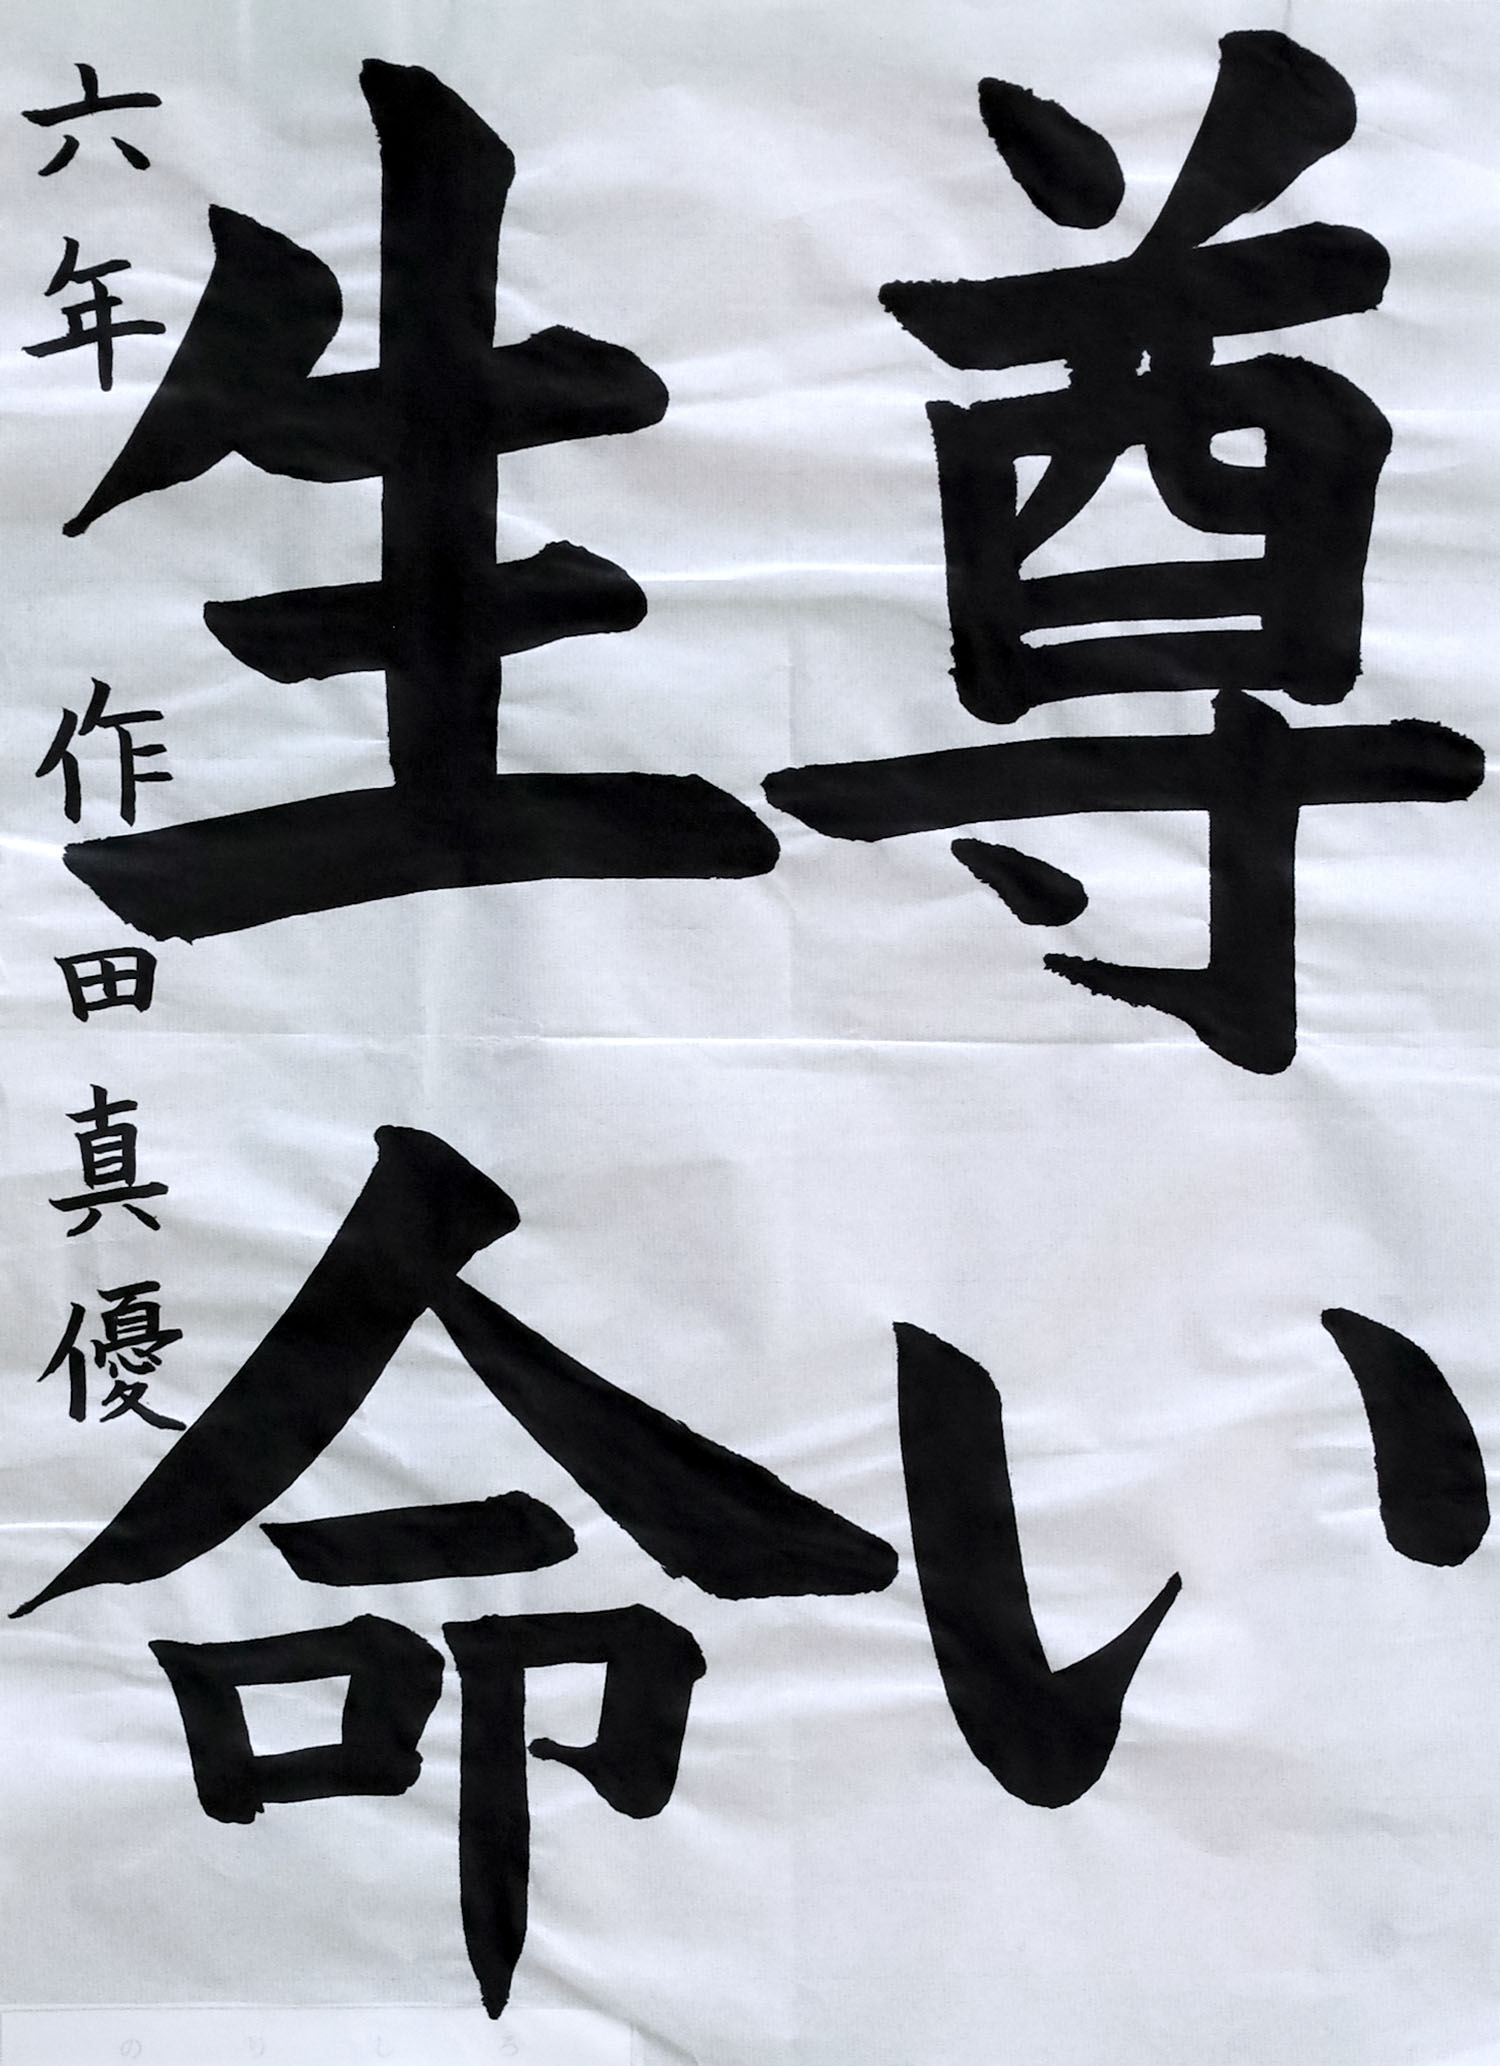 尊い
生命
六年 作田真優
のりしろ